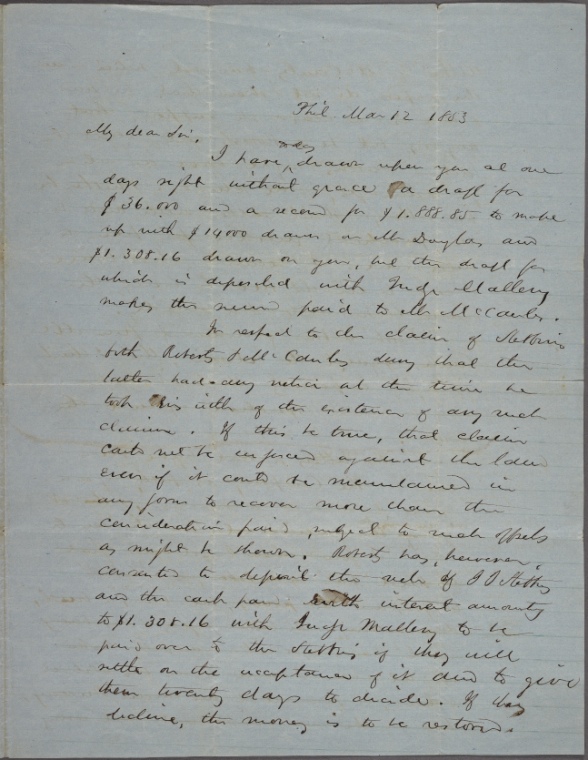 Phil Mar 12 1863
My dear Sir,
today
I have, drawn upon you at one
days sight without grace a draft for
$36.000 and a second for $1.888.85 to make
up with $14000 drawn on Mr Douglas and
$1.308.16 drawn on you, but the draft for
which is deposited with Judge Mallery
makes the sum paid to Mr McCauley.
In respect to the claim of Stebbins
both Roberts & McCauley deny that the
latter had any notice at the time he
took his title of the existence of any such
claim. If this be true, that claim
could not be enforced against the land
even if it could be maintained in
any form to recover more than the
consideration paid, subject to such offsets
as might be shown. Roberts has, however,
consented to deposit the note of
and the cash paid with interest amounting
to $1.308.16 with Judge Mallery to be
paid over to the Stebbins if they will
settle on the acceptance of it and to give
them twenty days to decide. If they
decline, the money is to be restored.